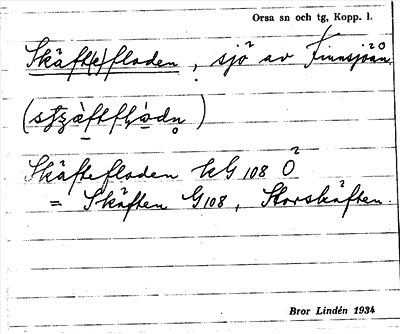 Orsa sn och tg, Kopp. l.
Skäft(e)floden, sjö av Finnsjöån.
Skäftefloden kG 108 Ö
= Skäften G108, Storskäften.
Bror Lindén 1934